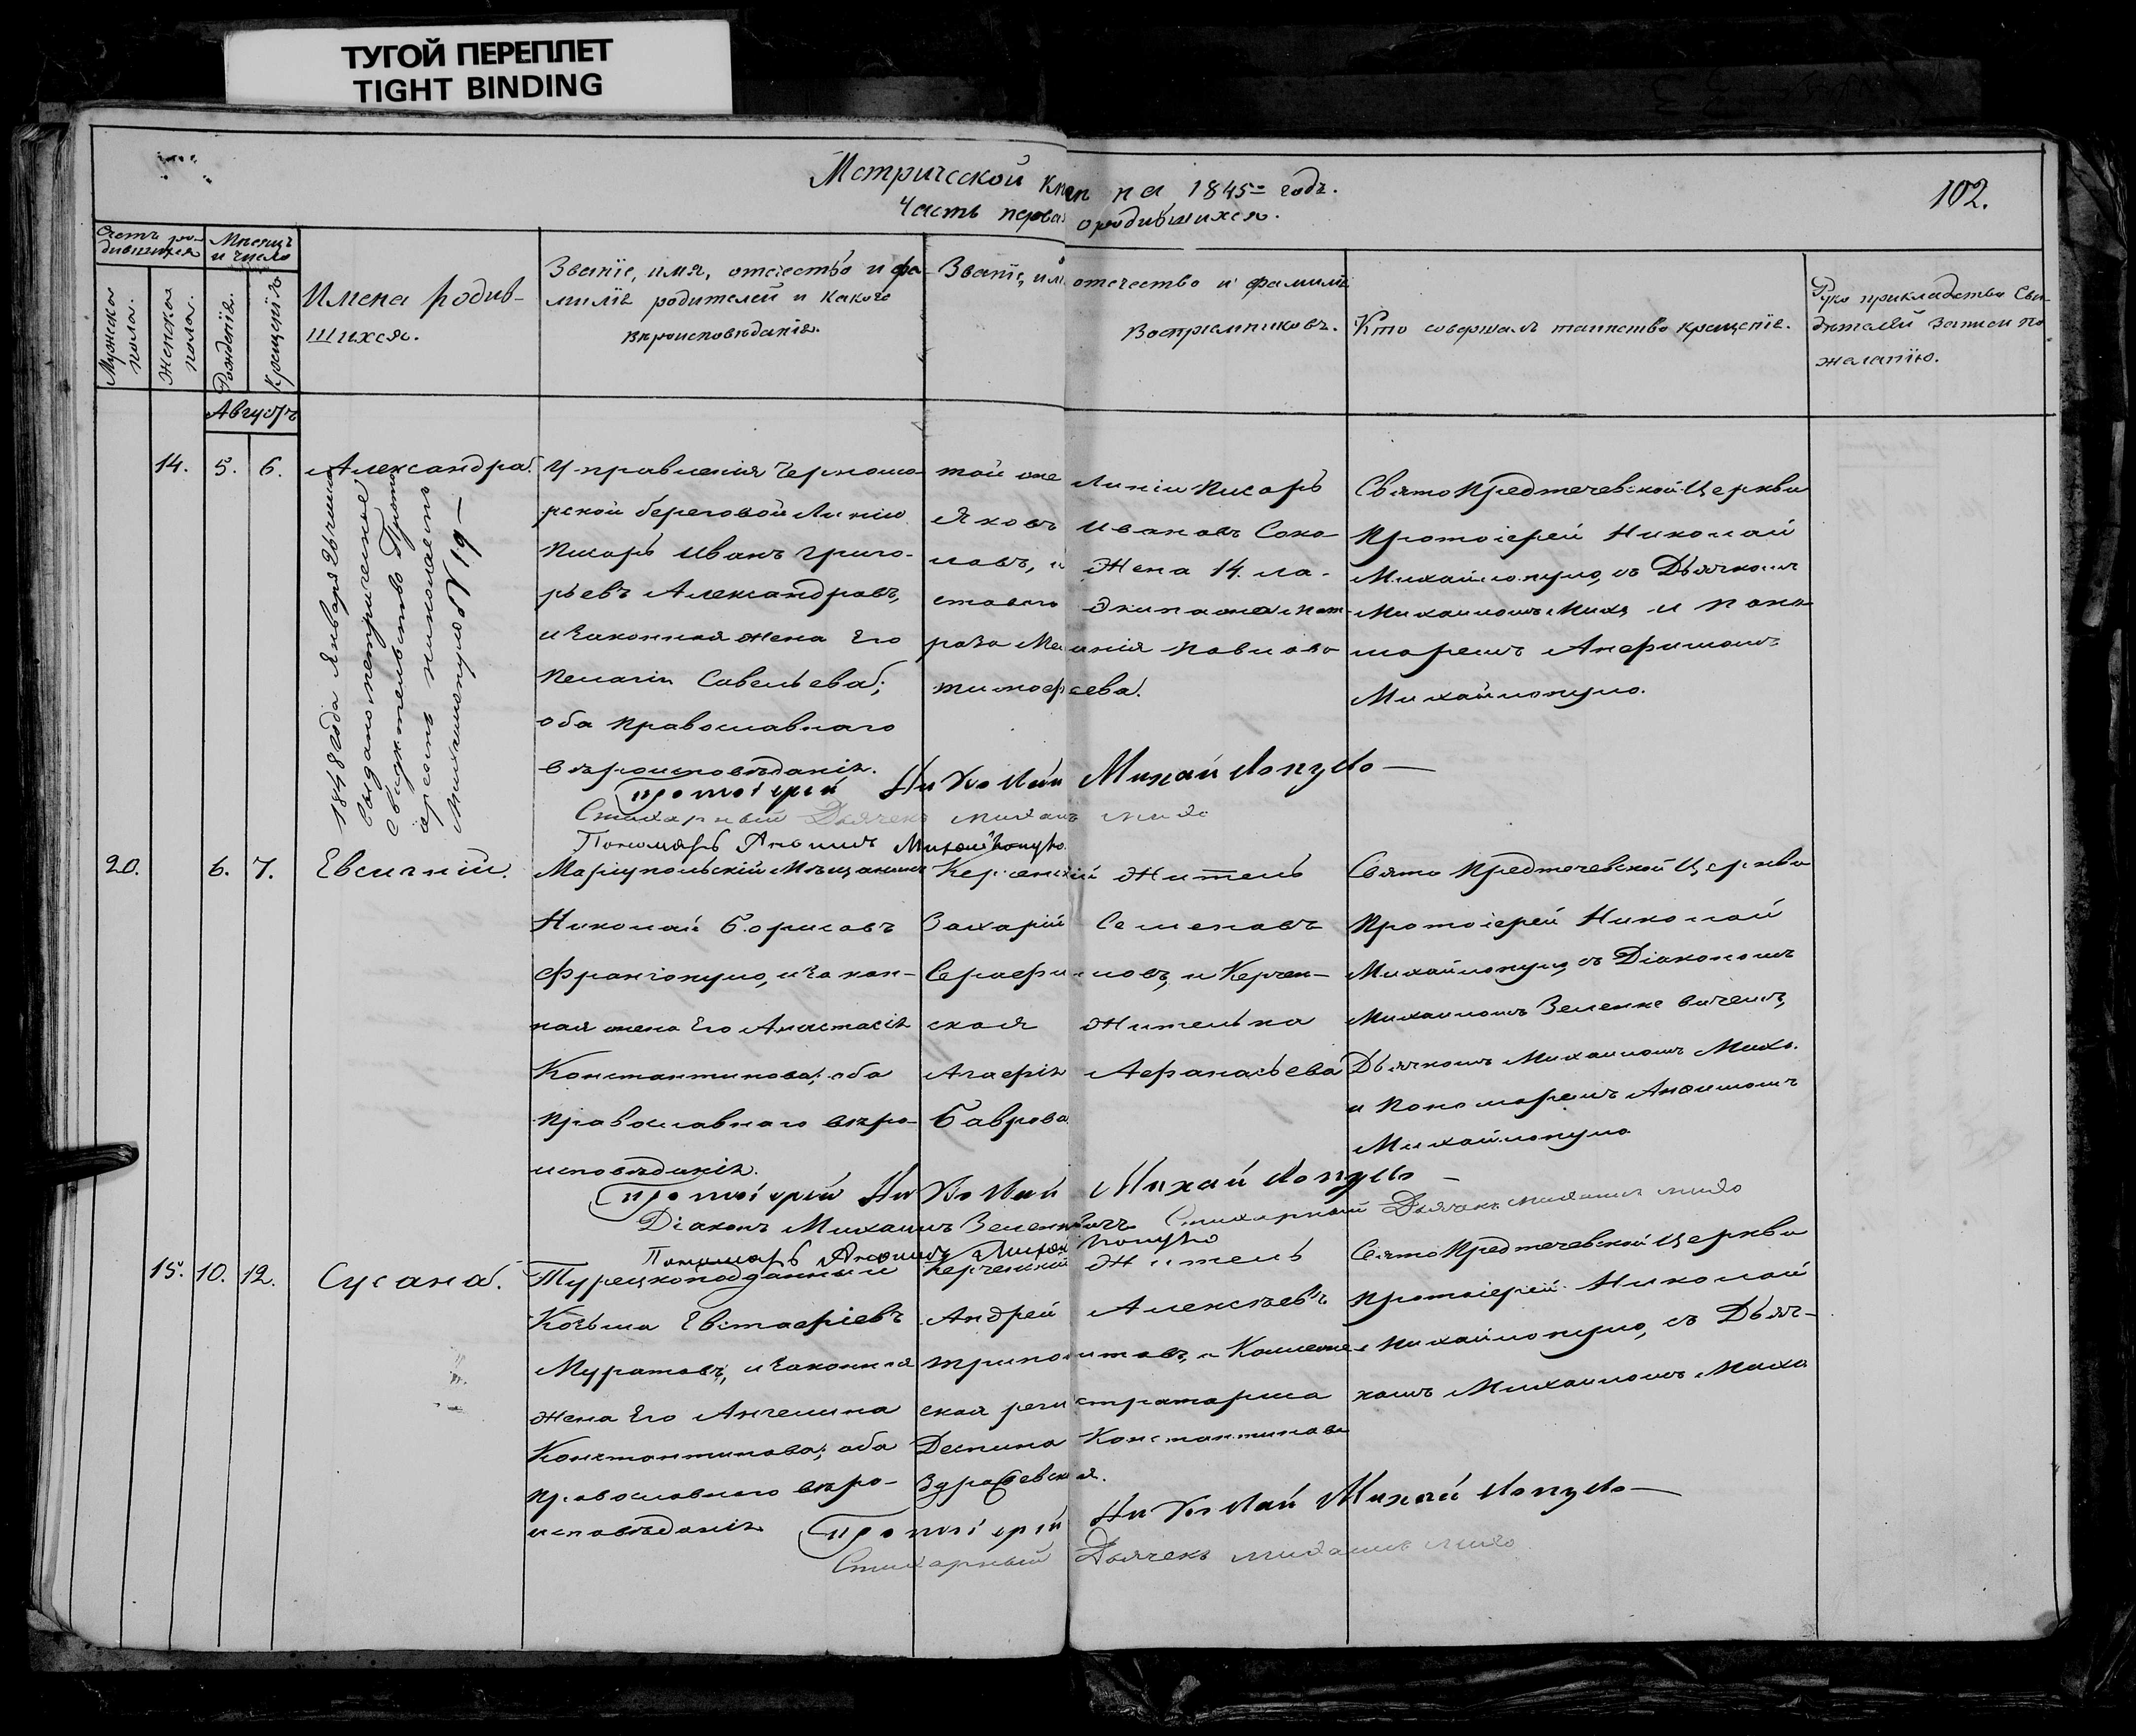 ТУГОЙ ПЕРЕПЛЕТ
TIGHT BINDING
Метрической книги на 1845 = годъ.
Часть первая о родившихся.
102.
Счетъ ро-
дившихся
Мужеска
пола.
Женска
пола.
Мѣсяцъ
и число
Рожденія.
Крещенія
Имена родив-
шихся.
Званіе, имя, отечество и фа-
миліе родителей и какого
вѣроисповѣданія.
Званіе, имя отечество и фамиліе
Воспріемниковъ.
Кто совершалъ таинство крещеніе.
Руко прикладство Сви-
дѣтелей записи по
желанію.
Августъ
14.
5.
6.
Александра.
1848 года Января 26 числа
выдано метрическое
свидѣтельство Прото-
іереемъ Николаемъ
Михайлопуло № 19 —
Управленія Черномо-
рской береговой Линіи
Писарь Иванъ Григо-
рьевъ Александровъ,
и Законная жена Его
Пелагія Савельева;
оба Православнаго
вѣроисповѣданія.
той же Линіи Писарь
Яковъ Ивановъ Соко-
ловъ, и Жена 14. ла-
стоваго Экипажа мат-
роза Меланія Павлова
тимофеева.
Свято Предтечевской Церкви
Протоіерей Николай
Михайлопуло, съ Дьячкомъ
Михаиломъ Михо и Поно-
маремъ Анфимомъ
Михайлопуло.
Протоіерей Николай Михайлопуло —
Стихарный Дьячекъ михаилъ михо
Пономарь Анѳимъ Михайлопуло.
20.
6.
7.
Евсигній.
Маріупольскій Мѣщанинъ
Николай Борисовъ
Франгопуло, и Закон-
ная жена Его Анастасія
Константинова; оба
Православнаго вѣро-
исповѣданія.
Керченскій Житель
Захарій Семеновъ
Серафимовъ, и Керчен-
ская Жителька
Агафія Афанасьева
Баврова
Свято Предтечевской Церкви
Протоіерей Николай
Михайлопуло, съ Діакономъ
Михаиломъ Зеленкевичемъ,
Дьячкомъ Михаиломъ Михо.
и Пономаремъ Анѳимомъ
Михайлопуло
Протоіерей Николай Михайлопуло —
Діаконъ Михаилъ Зеленкевичъ Стихарный Дьячекъ михаилъ михо
Пономарь Анѳимъ Михайлопуло
15.
10.
12.
Сусана.
Турецкоподданный
Козьма Евстафіевъ
Муратовъ, и Законная
жена Его Ангелина
Константинова; оба
Православнаго вѣро-
исповѣданія
Керченский Житель
Андрей Алексѣевъ
триполитовъ, и Коллеже-
ская регистраторша
Деспина Константинова
Свято Предтечевской Церкви
Протоіерей Николай
Михайлопуло, съ Дьяч-
комъ Михаиломъ Михо
Протоіерей Николай Михайлопуло —
Стихарный Дьячекъ михаилъ михо